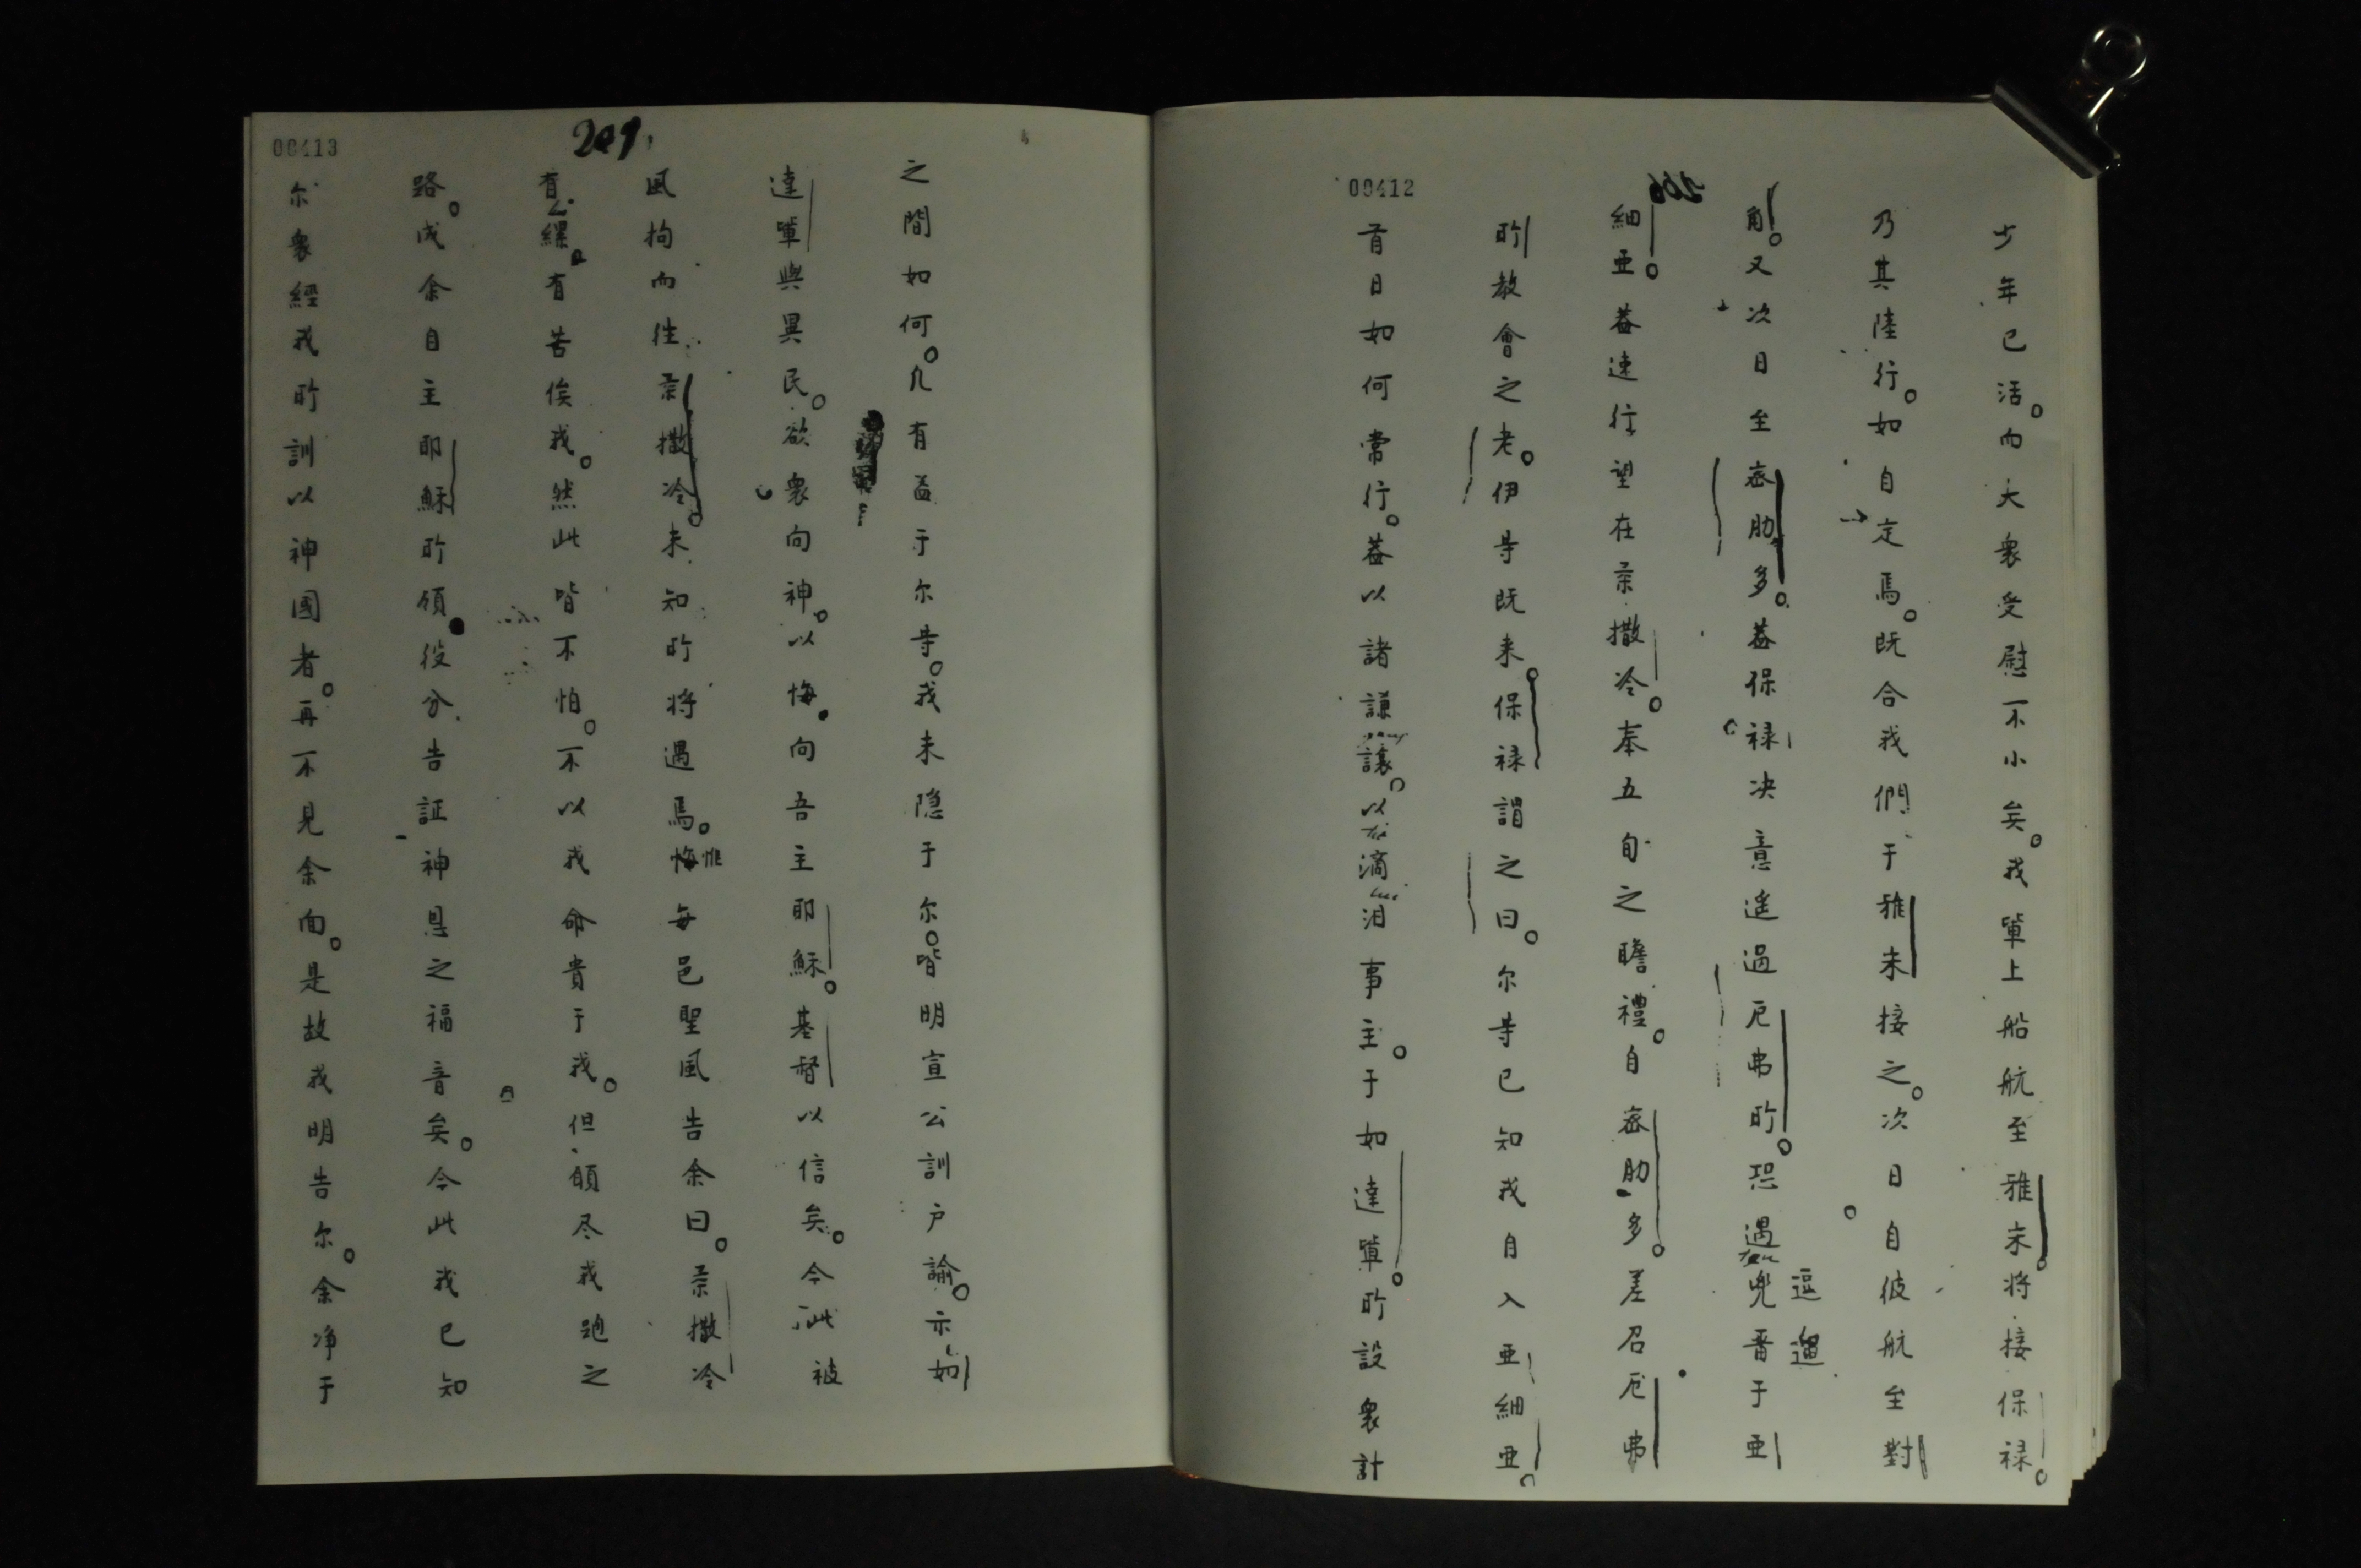 00412
266
少年已活。而大衆受慰不小矣。我軰上船航至雅末。将接保禄。
乃其陸行。如自定焉。既合我們于雅末接之。次日自彼航至對
角。又次日至宻肋多。葢保禄决意遥過厄弗所。恐遇兜畨于亞
逗遛
細亞。葢速行望在柔撒冷。奉五旬之瞻禮。自宻肋多。差召厄弗
所教會之老。伊䓁既来。保禄謂之曰。尔䓁已知我自入亞細亞。
首日如何常行。葢以諸謙讓。以滴泪事主。于如達軰。所設衆計
00413
209,
之間如何。凢有益于尔䓁。我未隠于尔。皆明宣公訓户諭。示如
達軰與異民。欲衆向神。以悔。向吾主耶穌。基督以信矣。今此被
風拘而徃柔撒冷。未知所将遇焉。悔惟每邑聖風告余曰。柔撒冷
有縲。有苦俟我。然此皆不怕。不以我命貴于我。但願尽我跑之
路。成余自主耶穌所領役分。告証神恩之福音矣。今此我已知
尔衆經我所訓以神國者。再不見余面。是故我明告尔。余净于